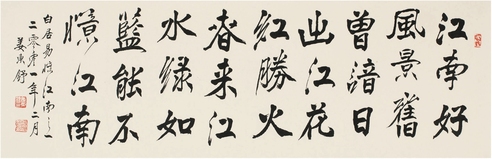 江南好
風景舊
曾諳日
出江花
紅勝火
春來江
水綠如
藍能不
憶江南
白居易憶江南之一
二零零一年二月
姜東舒